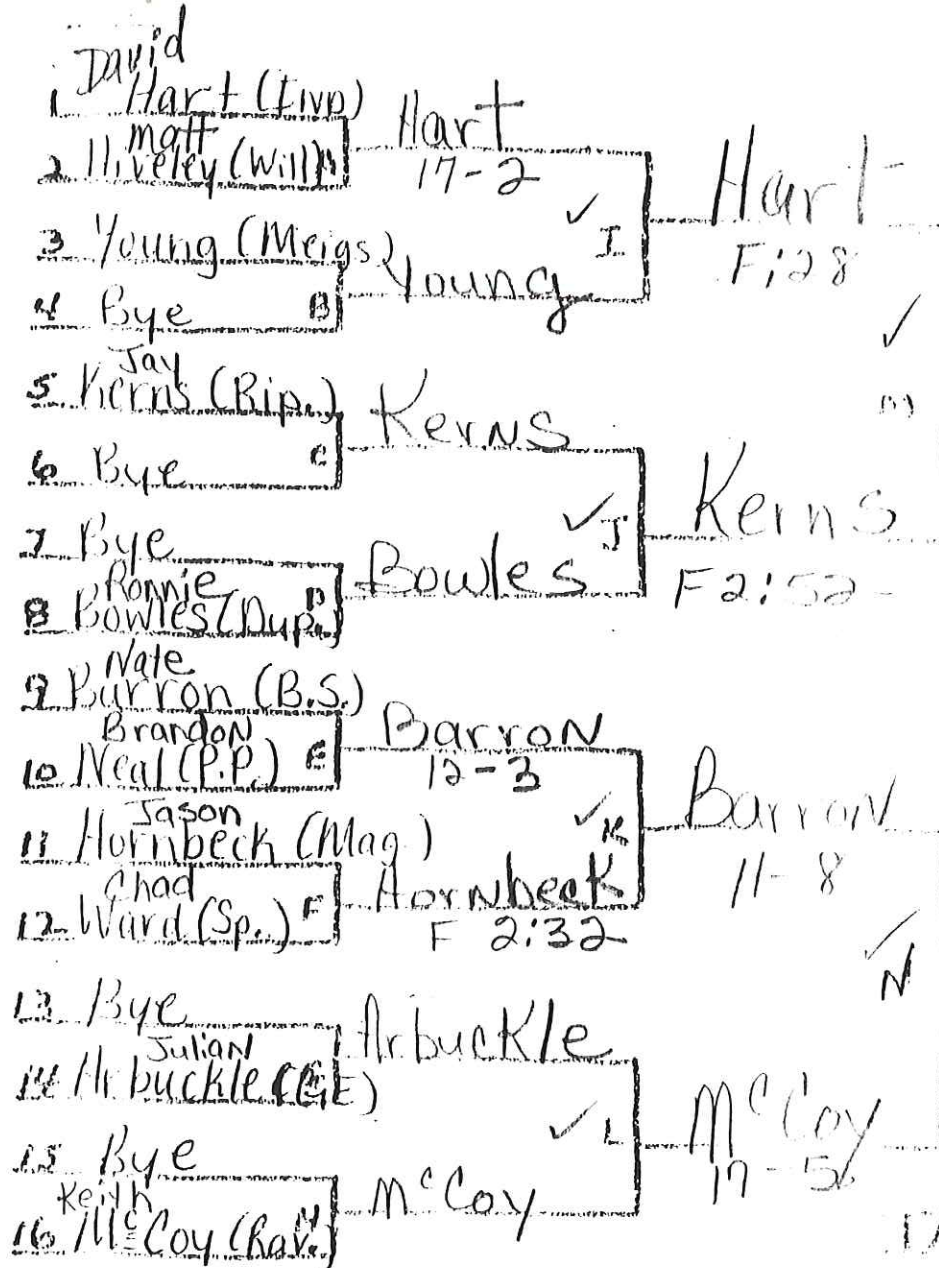 David
1 Hart (Ivp)
Matt
2 Hiveley (Will) A
3 Young (Meigs)
4 Bye B
Jay
5 Kerns (Rip.)
6 Bye C
7 Bye
Ronnie
8 Bowles (Dup.) D
Nate
9 Barron (B.S.)
Brandon
10 Neal (P.P.) E
Jason
11 Hornbeck (Mag.)
Chad
12 Ward (Sp.) F
13 Bye
Julian
14 Arbuckle (GE)
15 Bye
Keith
16 McCoy (Rav.) H
Hart
17-2
Young
Kerns
Bowles
Barron
12-3
Hornbeck
F 2:32
Arbuckle
McCoy
✓ I
✓ J
✓ K
✓ L
Hart
F:28
Kerns
F2:52
Barron
11-8
McCoy
17-5
✓
M
✓
N